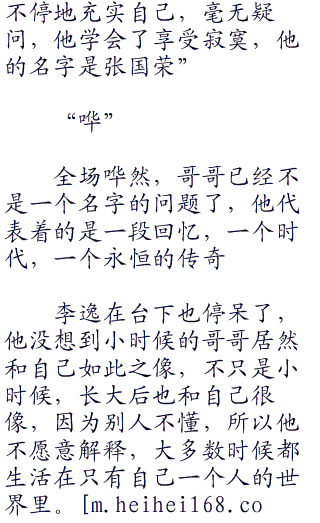 不停地充实自己，毫无疑
问，他学会了享受寂寞，他
的名字是张国荣”
“哗”
全场哗然，哥哥已经不
是一个名字的问题了，他代
表着的是一段回忆，一个时
代，一个永恒的传奇
李逸在台下也停呆了，
他没想到小时候的哥哥居然
和自己如此之像，不只是小
时候，长大后也和自己很
像，因为别人不懂，所以他
不愿意解释，大多数时候都
生活在只有自己一个人的世
界里。[m.heihei168.co